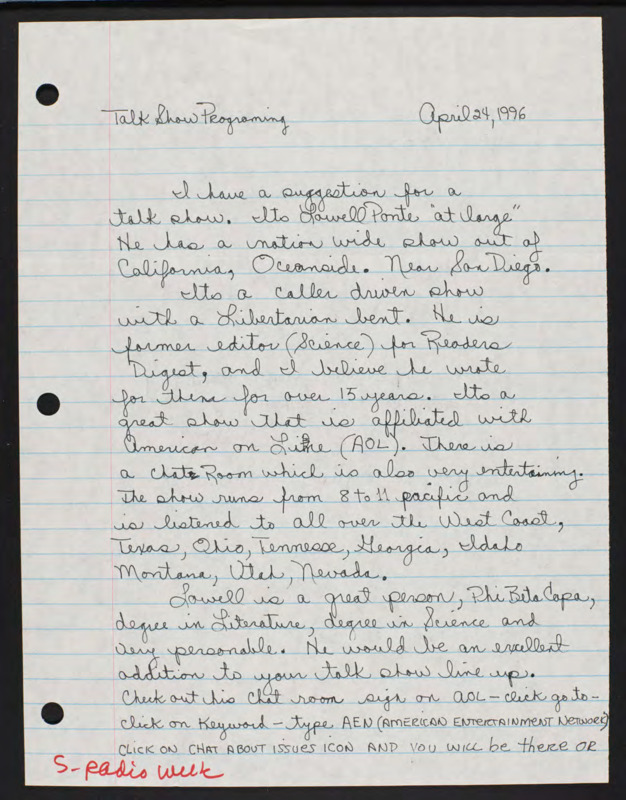 Talk Show Programing April 24, 1996
I have a suggestion for a
talk show. Its Lowell Ponte "at large"
He has a nation wide show out of
California, Oceanside. Near San Diego.
Its a caller driven show
with a Libertarian bent. He is
former editor (Science) for Readers
Digest, and I believe he wrote
for them for over 15 years. Its a
great show that is affiliated with
American on Line (AOL). There is
a Chat Room which is also very entertaining.
The show runs from 8 to 11 pacific and
is listened to all over the West Coast,
Texas, Ohio, Tennesse, Georgia, Idaho
Montana, Utah, Nevada.
Lowell is a great person, Phi Beta Capa,
degree in Literature, degree in Science and
very personable. He would be an excellent
addition to your talk show line up.
Check out his chat room sign on AOL - click go to -
click on Keyword - type AEN (AMERICAN ENTERTAINMENT NETWORK)
CLICK ON CHAT ABOUT ISSUES ICON AND YOU WILL be there OR
S- Radio Week